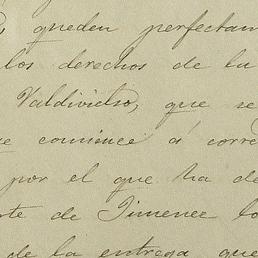 queden perfectam
los derechos de la
Valdivielso, que se
comience á corre
por el que ha de
te de Jimenez lo
de la entrega que